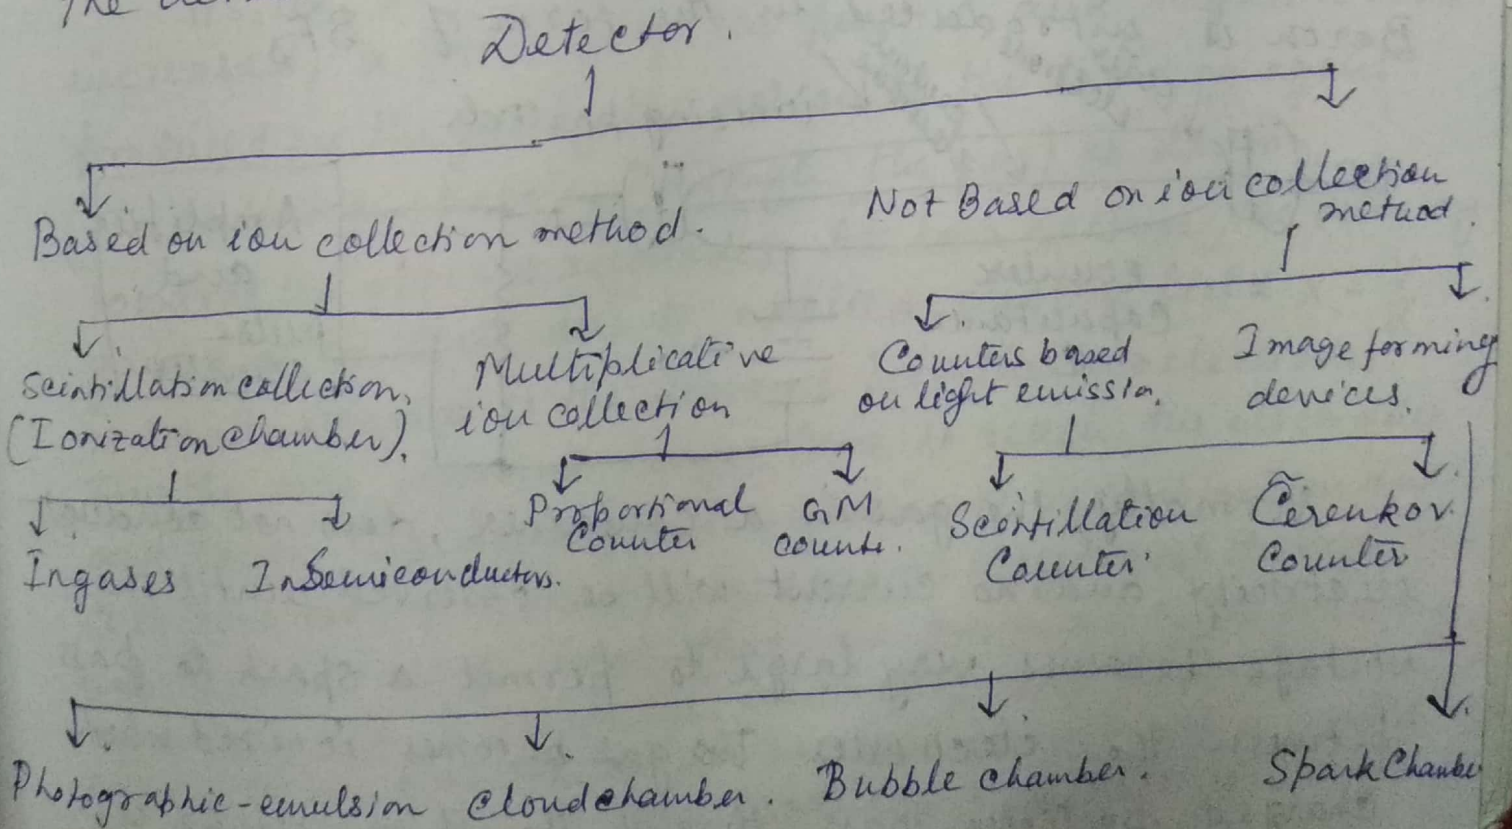 The
Detector.
Not Based on ion collection
method.
Based on ion collection method.
Scintillation collection,
(Ionization chamber).
Multiplicative
ion collection
Counters based
on light emission.
Image forming
devices.
In gases
In Semiconductors.
Proportional
Counter
GM
counte.
Scintillation
Counter
Cerenkov
Counter
Photographic-emulsion
Cloud chamber.
Bubble chamber.
Spark Chambe